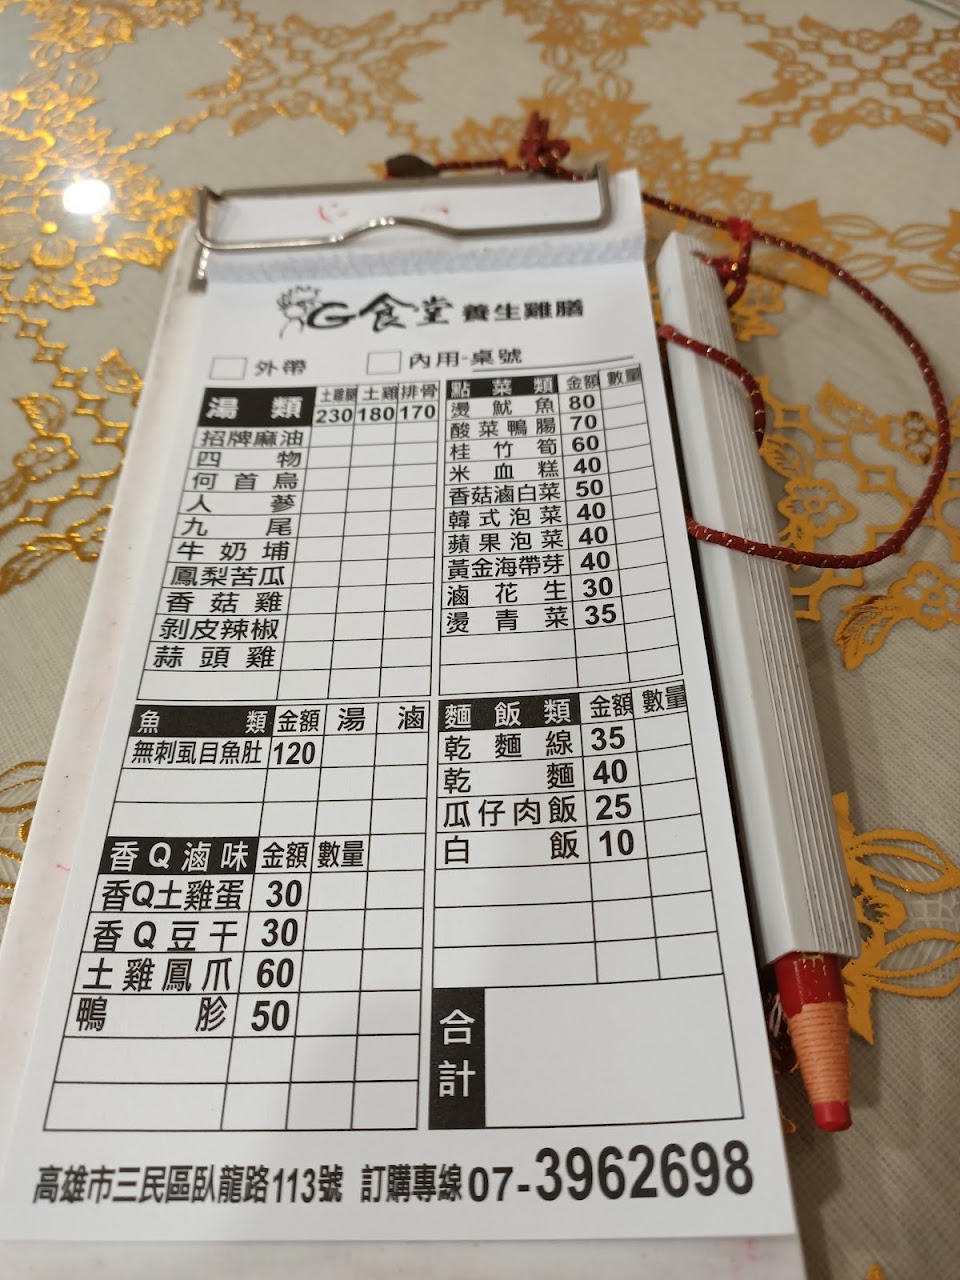 G食堂 養生雞膳
外帶 內用-桌號
湯類 土雞腿 土雞 排骨
230 180 170
招牌麻油
四物
何首烏
人蔘
九尾
牛奶埔
鳳梨苦瓜
香菇雞
剝皮辣椒
蒜頭雞
點菜類 金額 數量
燙魷魚 80
酸菜鴨腸 70
桂竹筍 60
米血糕 40
香菇滷白菜 50
韓式泡菜 40
蘋果泡菜 40
黃金海帶芽 40
滷花生 30
燙青菜 35
魚類 金額 湯 滷
無刺虱目魚肚 120
麵飯類 金額 數量
乾麵線 35
乾麵 40
瓜仔肉飯 25
白飯 10
香Q滷味 金額 數量
香Q土雞蛋 30
香Q豆干 30
土雞鳳爪 60
鴨胗 50
合計
高雄市三民區臥龍路113號 訂購專線07-3962698